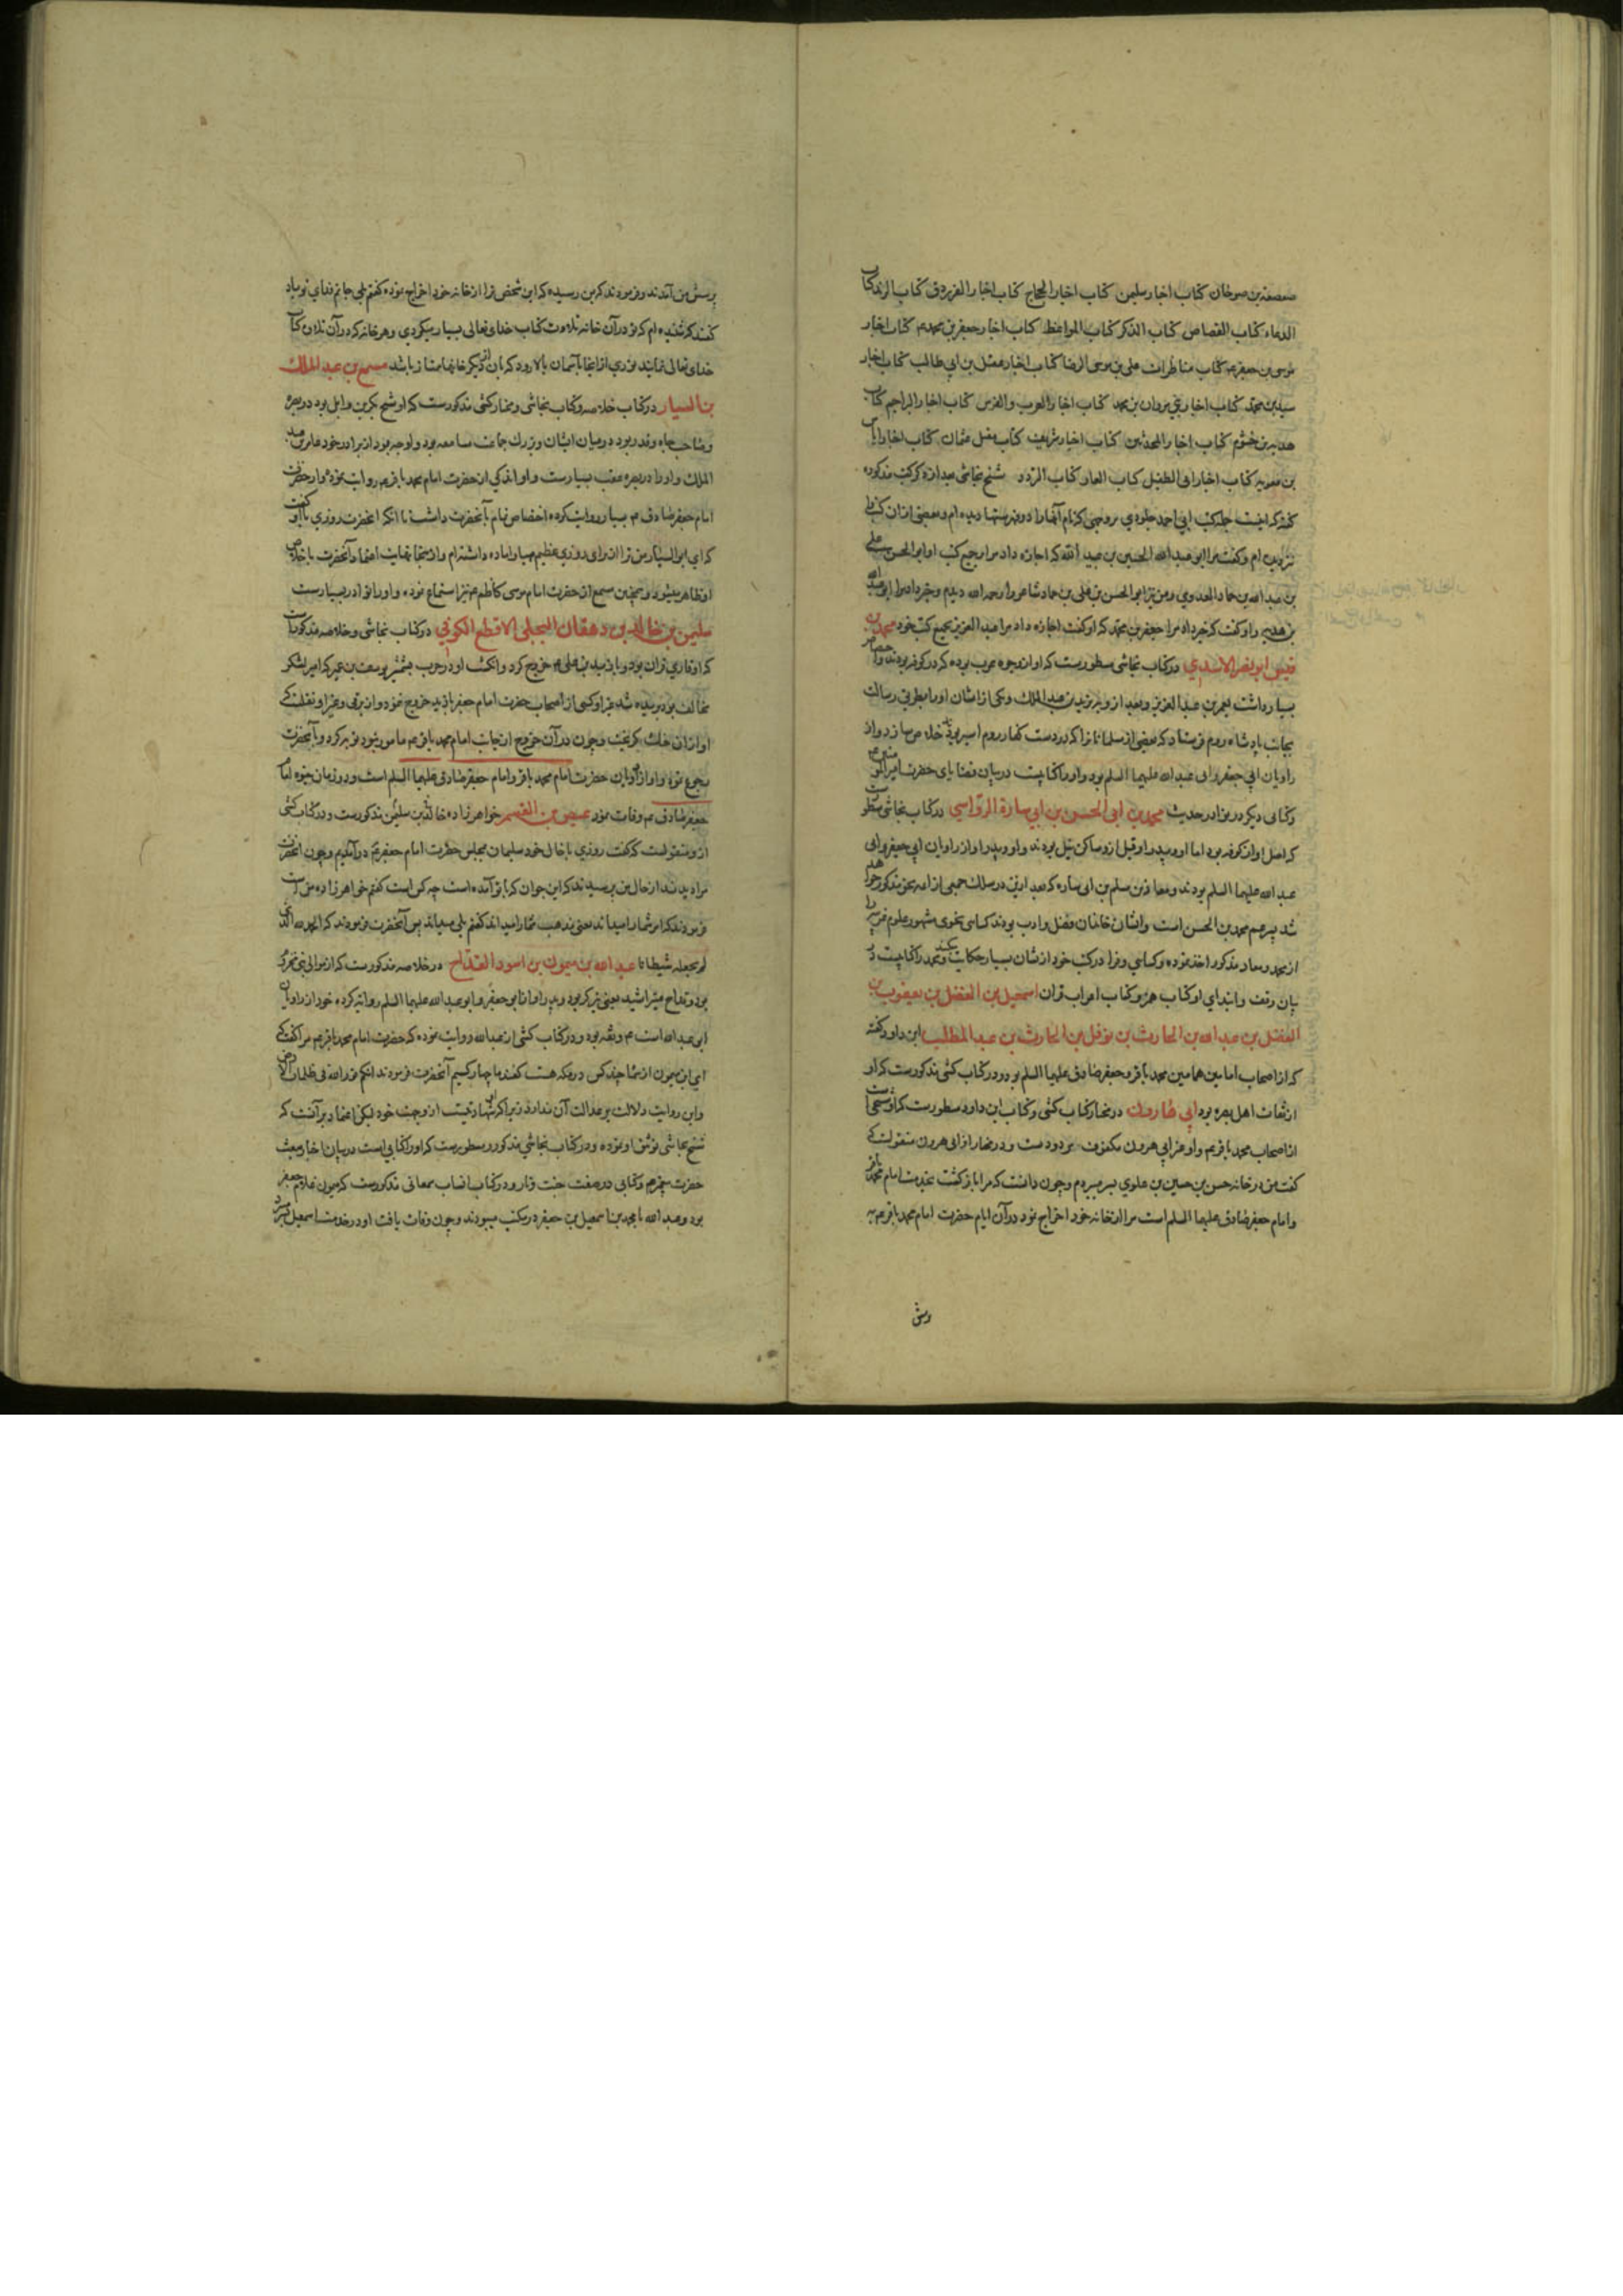 صعصعة بن صوحان کتاب اخبار سلیمن کتاب اخبار الحجاج کتاب اخبار الفرزدق کتاب الزند کتاب
الدعاء کتاب القصاص کتاب الذکر کتاب المواعظ کتاب اخبار جعفر بن محمد عم کتاب اخبار
موسی بن جعفر عم کتاب مناظرات علی بن موسی الرضا کتاب اخبار عقیل بن ابی طالب کتاب اخبار
سید بن محمد کتاب اخبار بنی مروان بن محمد کتاب اخبار العرب و الفرس کتاب اخبار البراجم کتاب
هدبه بن خشرم کتاب اخبار المحدثین کتاب اخبار شریف کتاب مقتل عثمان کتاب اخبار ایاس
بن معویه کتاب اخبار ابی الطفیل کتاب الفار کتاب القرود شیخ نجاشی بعد از ذکر کتب مذکوره
گفته که اینست جمله کتب ابی احمد جلودی بر وجهی که نام آنها را در فهرستها دیده ام و بعضی از آن کتب را
نزد من ام و گفت مرا ابو عبد الله الحسین بن عبید الله که اجازه داد مرا بجمیع کتب او ابو الحسن علی
بن عبد الله بن حماد العدوی و من نیز ابو الحسن بن علی بن حماد شاعر را رحمه الله دیدم و خبر داد مرا ابو عبد الله
بن هدیه و او گفت که خبر داد مرا جعفر بن محمد که او گفت اجازه داد مرا عبد العزیز بجمیع کتب خود محمد بن
قیس ابو نصر الاسدی در کتاب نجاشی مسطورست که او از وجوه عرب بوده که در کوفه بودند و اختصاص
بسیار داشت بعمر بن عبد العزیز و بعد از و بیزید بن عبد الملک و یکی از ایشان او را بطریق رسالت
بجانب پادشاه روم فرستاد که بعضی از مسلمانان را که در دست کفار روم اسیر بودند خلاص سازد و از
راویان ابی جعفر و ابی عبد الله علیهما السلم بود و او را کتابیست در بیان قضایای حضرت امیر المومنین عم
و کتابی دیگر در نوادر حدیث محمد بن ابی الحسن بن ابی سارة الرواسی در کتاب نجاشی مسطورست
که اصل او از کوفه بود اما او و پدر او قبل ازو ساکن نیل بودند و او و پدر او از راویان ابی جعفر و ابی
عبد الله علیهما السلم بودند و معاذ بن مسلم بن ابی ساره که بعد ازین در سلک جمعی از ائمه نحو مذکور خواهد
شد پسر عم محمد بن الحسن است و ایشان خاندان فضل و ادب بودند کسائی نحوی مشهور علوم عربیه را
از محمد و معاذ مذکور اخذ نموده و کسائی و فرا در کتب خود از ایشان بسیار حکایت کنند و محمد را کتابیست در
بیان وقف و ابتدای او کتاب همزه و کتاب اعراب قران اسمعیل بن الفضل بن یعقوب بن
الفضل بن عبد الله بن الحارث بن نوفل بن الحارث بن عبد المطلب ابن داود گفته
که از اصحاب امامین همامین محمد باقر و جعفر صادق علیهما السلم بود و در کتاب کشی مذکورست که او
از ثقات اهل بصره بود ابی هارون در مختار کتاب کشی و کتاب ابن داود مسطورست که او شخصی است
از اصحاب محمد باقر عم و او غیر ابی هرون مکفوف مردودست و در مختار از ابی هرون منقولست که
گفت من در خانه حسن بن حسین بن علوی بسر میبردم و چون دانست که مرا بازگشت بخدمت امام محمد باقر
و امام جعفر صادق علیهما السلم است مرا از خانه خود اخراج نمود در آن ایام حضرت امام محمد باقر عم به
پرسش من آمدند و فرمودند که بمن رسیده که این شخص ترا از خانه خود اخراج نموده گفتم بلی جانم فدای تو باد
گفتند که شنیده ام که تو در آن خانه تلاوت کتاب خدای تعالی بسیار میکردی و هر خانه که در آن تلاوت کتاب
خدای تعالی نمایند نوری از انجا بآسمان بالا رود که بان از دیگر خانها ممتاز باشد مسمع بن عبد الملک
بن السیار در کتاب خلاصه و کتاب نجاشی و مختار کشی مذکورست که او شیخ بکر بن وایل بود در بصره
و صاحب جاه و قدر بود در میان ایشان و بزرگ جماعت مسامعه بود و اوجه بود از برادر خود عامر بن عبد
الملک و او را در بصره عقب بسیارست و او اندکی از حضرت امام محمد باقر عم روایت نموده و از حضرت
امام جعفر صادق عم بسیار روایت کرده اختصاص تمام بآنحضرت داشت تا آنکه آنحضرت روزی باو گفت
که ای ابو السیار من ترا از برای روزی عظیم مهیا و اماده داشته ام و از اینجا نهایت اعتماد آنحضرت باخلاص
او ظاهر میشود و همچنین مسمع از حضرت امام موسی کاظم عم نیز استماع نموده و او را نوادر بسیارست
سلیمن بن خالد بن دهقان البجلی الاقطع الکوفی در کتاب نجاشی و خلاصه مذکورست
که او قاری قران بود و با زید بن علی عم خروج کرد و انگشت او در حرب بشمشیر یوسف بن عمر که امیر لشکر
مخالف بود بریده شد و غیر او کسی از اصحاب حضرت امام جعفر با زید خروج ننمود و از برقی و غیر او نقلست که
او از آن جنگ گریخت و چون در آن خروج از جانب امام محمد باقر عم مامور نبود توبه کرد و بآنحضرت
رجوع نمود و او از راویان حضرت امام محمد باقر و امام جعفر صادق علیهما السلم است و در زمان حیوة امام
جعفر صادق عم وفات نمود عیص بن القاسم خواهر زاده خالد بن سلیمن مذکورست و در کتاب کشی
ازو منقولست که گفت روزی با خال خود سلیمان بمجلس حضرت امام جعفر عم در آمدیم و چون آنحضرت
مرا دیدند از خال من پرسیدند که این جوان که با تو آمده است چه کس است گفتم خواهر زاده من است
فرمودند که امر شما را میداند یعنی مذهب شما را میداند گفتم بلی میداند پس آنحضرت فرمودند که الحمد لله الذی
لم یجعله شیطانا عبد الله بن میمون بن اسود القداح در خلاصه مذکورست که از موالی بنی مخزوم
بود و قداح میتراشید یعنی تیرگر بود و پدر او از ابو جعفر و ابو عبد الله علیهما السلم روایه کرده خود از راویان
ابی عبد الله است عم و ثقه بود و در کتاب کشی از عبد الله روایت نموده که حضرت امام محمد باقر عم مرا گفت که
ای ابن میمون از شما چند کس در مکه هست گفتند ما چهار کسیم آنحضرت فرمودند انکم نور الله فی ظلمات الارض
و این روایت دلالت بر عدالت آن ندارد زیرا که شهادتیست ازو جهت خود لیکن اعتماد بر آنست که
شیخ نجاشی توثیق او نموده و در کتاب نجاشی مذکور و مسطورست که او را کتابی است در بیان اخبار مبعث
حضرت پیغمبر عم و کتابی در صفت جنت و نار و در کتاب انساب سمعانی مذکورست که میمون غلام جعفر
بود و عبد الله با محمد بن اسمعیل بن جعفر در مکتب میبودند و چون وفات یافت او در خدمت اسمعیل بسر میبرد